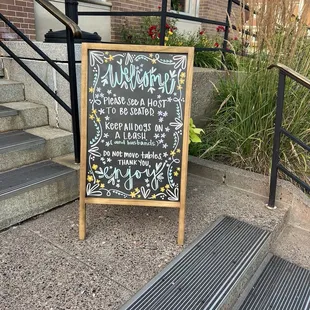 Welcome
Please see a Host
to be seated
Keep all dogs
on a leash
(and husbands)
Do not move tables
Thank you
enjoy